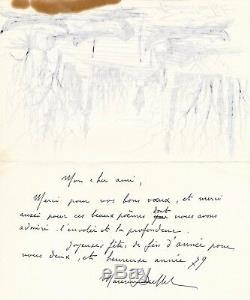 Mon cher ami,
Merci pour vos bons vœux, et merci
aussi pour ces beaux poèmes dont nous avons
admiré l'envolée et la profondeur.
Joyeuses fêtes de fin d'année pour
vous deux, et heureuse année 79